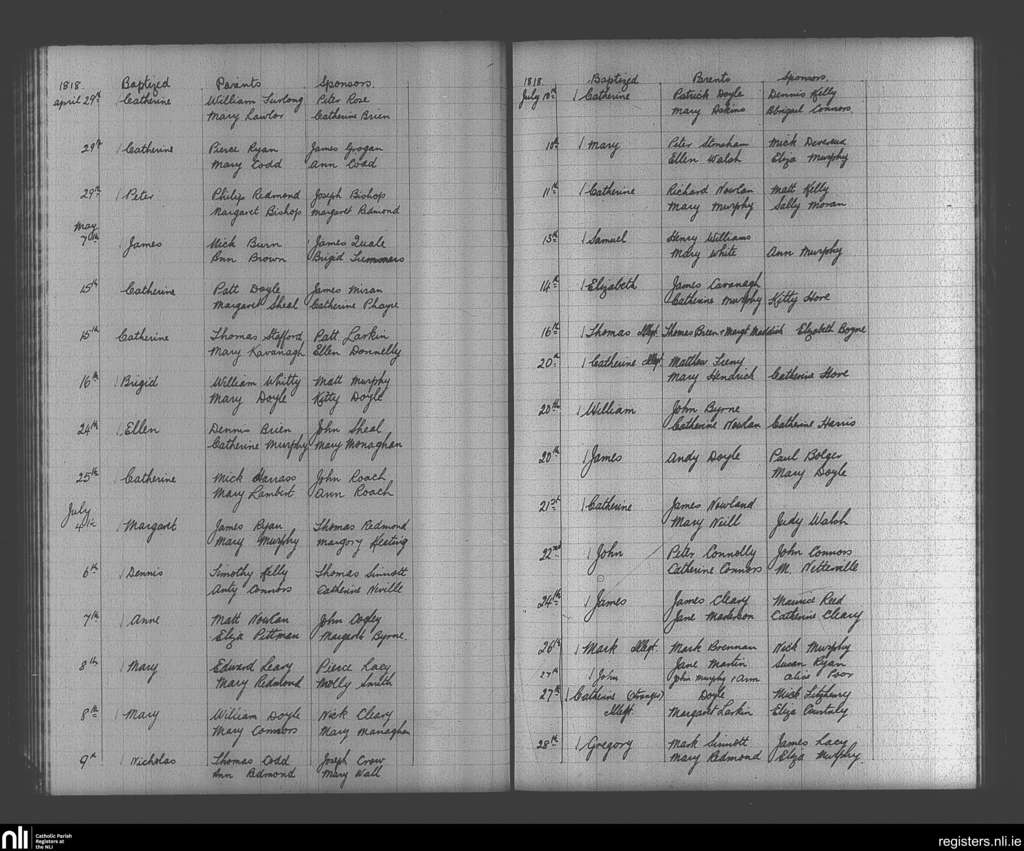 1818. Baptized Parents Sponsors.
April 29th Catherine William Furlong Peter Rose
Mary Lawlor Catherine Brien
29th Catherine Pierce Ryan James Grogan
Mary Codd Ann Codd
29th Peter Philip Redmond Joseph Bishop
Margaret Bishop Margaret Redmond
May
7th James Mick Burn James Quale
Ann Brown Brigid Summers
15th Catherine Patt Doyle James Miran
Margaret Sheal Catherine Phayre
15th Catherine Thomas Stafford Patt Larkin
Mary Kavanagh Ellen Donnelly
16th Brigid William Whitty Matt Murphy
Mary Doyle Kitty Doyle
24th Ellen Dennis Brien John Sheal
Catherine Murphy Mary Monaghan
25th Catherine Mick Harrass John Roach
Mary Lambert Ann Roach
July
4th Margaret James Ryan Thomas Redmond
Mary Murphy Margory Keating
6th Dennis Timothy Kelly Thomas Sinnott
Anty Connors Catherine Neville
7th Anne Matt Nowlan John Cogley
Eliza Pittman Margaret Byrne.
8th Mary Edward Leary Pierce Lacy
Mary Redmond Molly Smith
8th Mary William Doyle Nick Cleary
Mary Connors Mary Managhan
9th Nicholas Thomas Codd Joseph Crow
Ann Redmond Mary Wall
1818. Baptized Parents Sponsors.
July 10th Catherine Patrick Doyle Dennis Kelly
Mary Askins Abigail Connors
10th Mary Peter Stoneham Mick Devereux
Ellen Walsh Eliza Murphy
11th Catherine Richard Nowlan Matt Kelly
Mary Murphy Sally Moran
13th Samuel Henry Williams
Mary White Ann Murphy
14th Elizabeth James Cavanagh
Catherine Murphy Kitty Hore
16th Thomas Illegt. Thomas Brien & Margt Maddish Elizabeth Bogue
20th Catherine Illegt. Matthew Feeny
Mary Hendrick Catherine Hore
20th William John Byrne
Catherine Nowlan Catherine Harris
20th James Andy Doyle Paul Bolger
Mary Doyle
21st Catherine James Nowland
Mary Neill Judy Walsh
22nd John Peter Connolly John Connors
Catherine Connors M. Netterville
24th James James Cleary Maurice Reed
Jane Maderson Catherine Cleary
26th Mark Illegt. Mark Brennan Nick Murphy
Jane Martin Susan Ryan
27th John John Murphy & Ann Alice Poor
27th Catherine (Stranger) Doyle Mick Fitzhenry
Illegt. Margaret Larkin Eliza
28th Gregory Mark Sinnott James Lacy
Mary Redmond Eliza Murphy.
nli Catholic Parish
Registers at
the NLI
registers.nli.ie